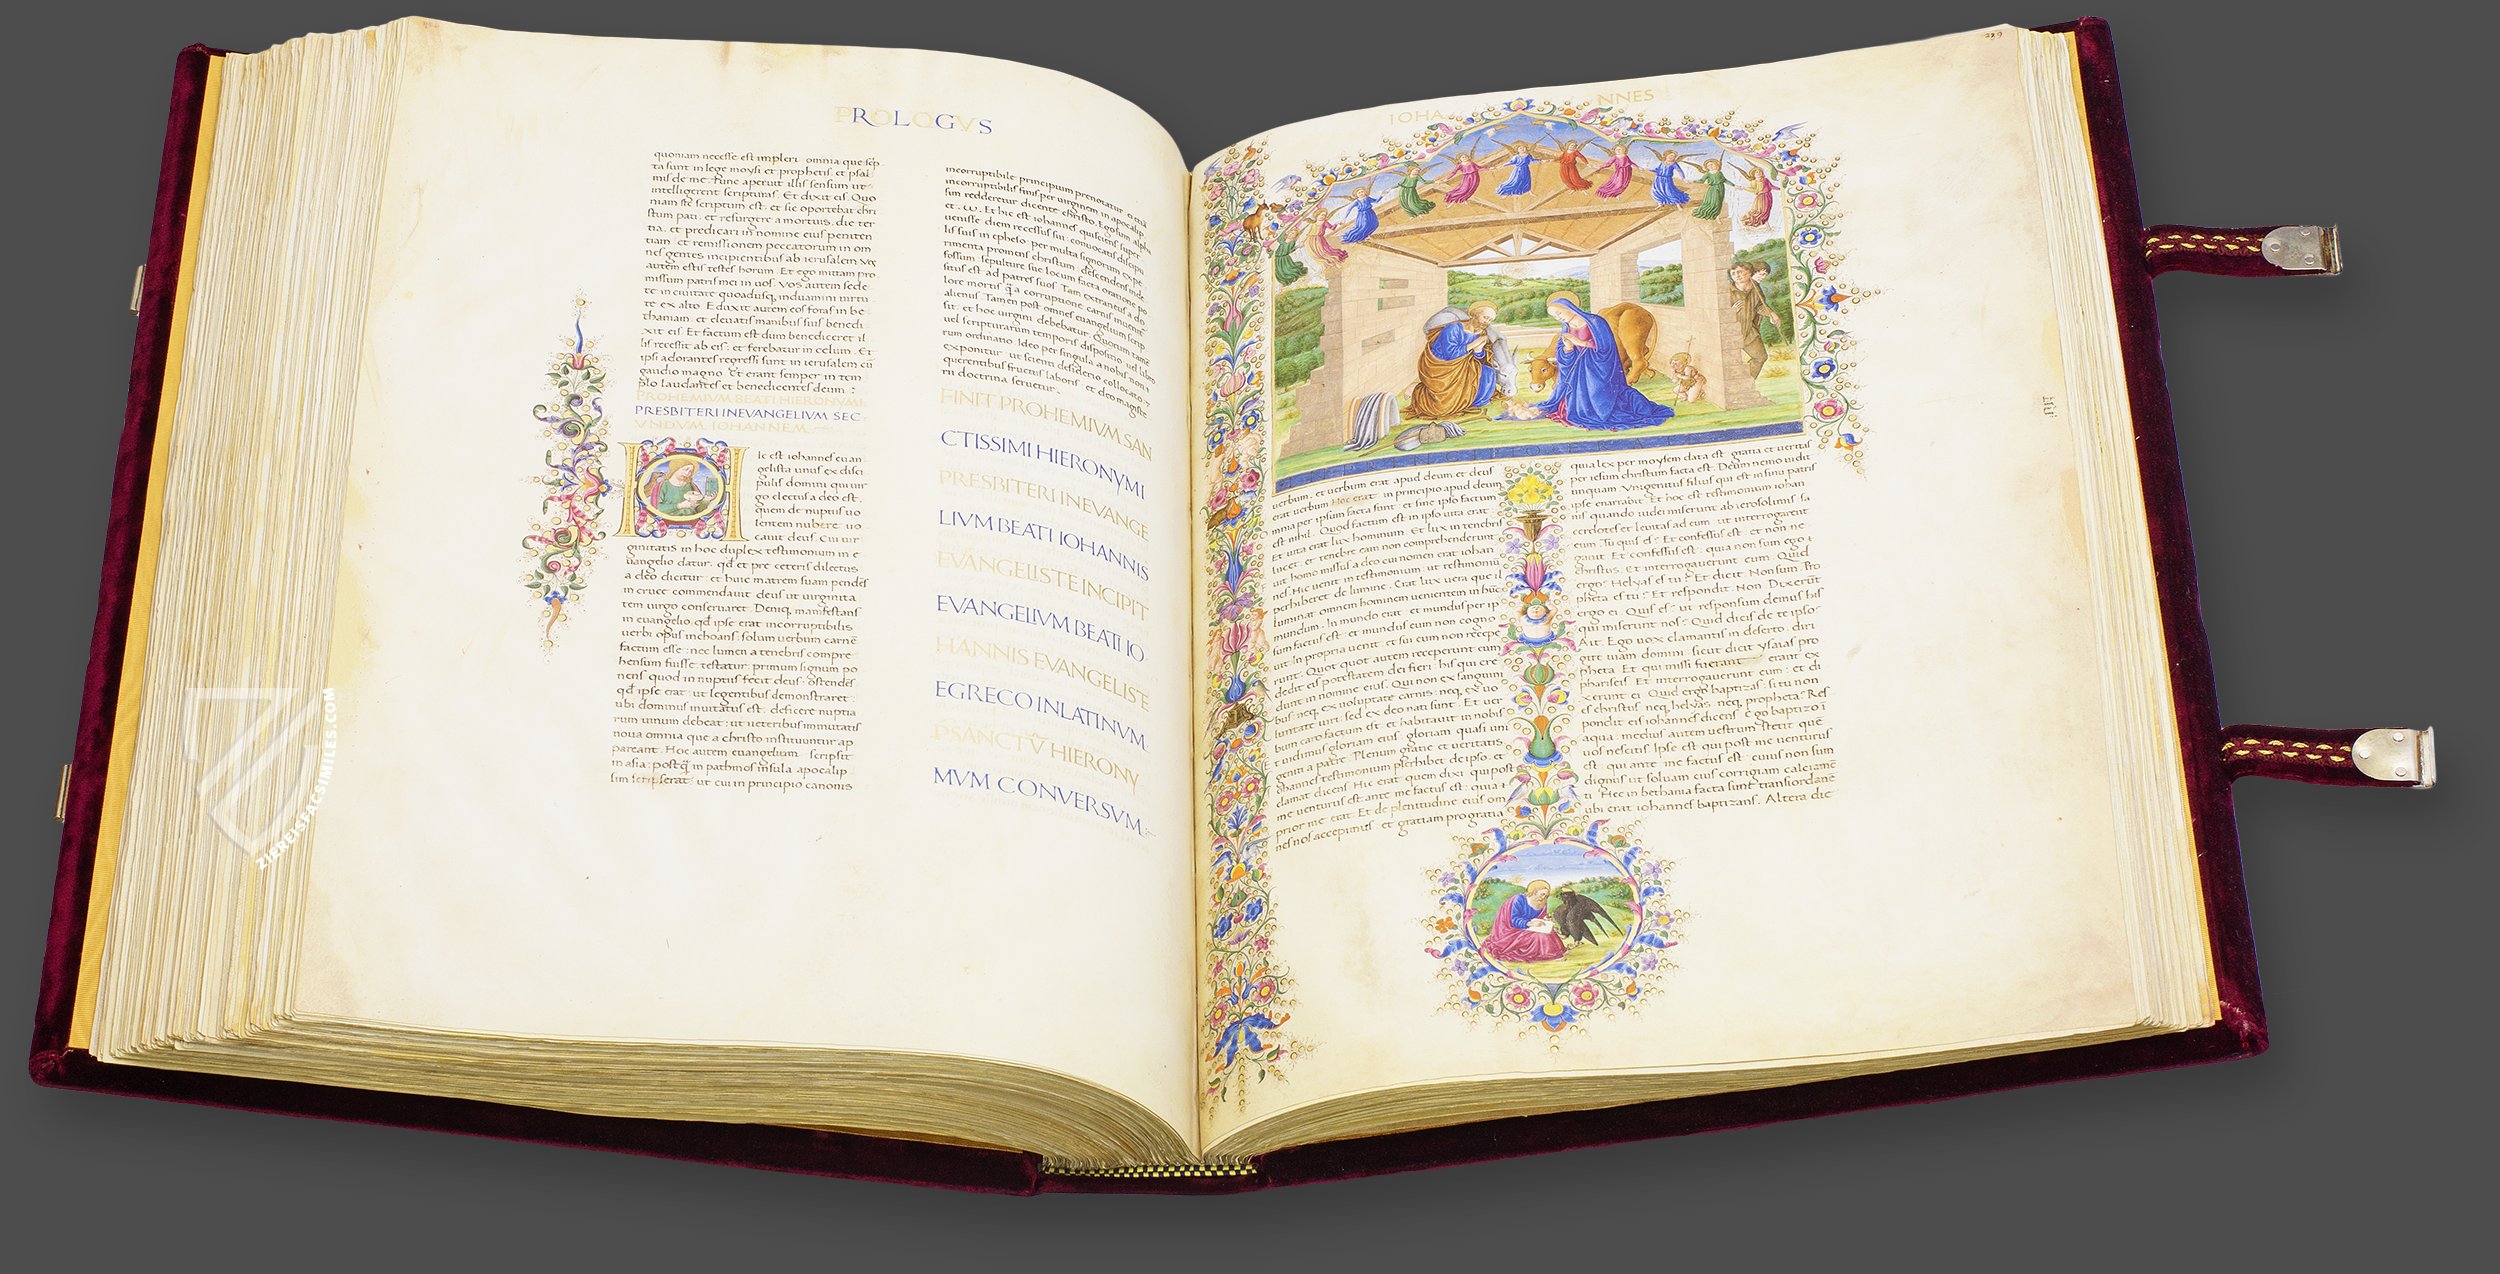 PROLOGVS
quoniam necesse est impleri omnia que scp
ta sunt in lege moysi et prophetis et psal
mis de me. Tunc aperuit illis sensum ut
intelligerent scripturas. Et dixit eis. Quo
niam sic scriptum est. et sic oportebat chri
stum pati. et resurgere a mortuis. die ter
tia. et predicari in nomine eius peniten
tiam et remissionem peccatorum in om
nes gentes incipientibus ab ierusalem. Vos
autem estis testes horum. Et ego mittam pro
missum patris mei in uos. Vos autem sede
te in ciuitate quoadusq induamini uirtu
te ex alto. Eduxit autem eos foras in be
thaniam. et eleuatis manibus suis benedi
xit eis. Et factum est dum benediceret il
lis recessit ab eis. et ferebatur in celum. Et
ipsi adorantes regressi sunt in ierusalem cū
gaudio magno. et erant semper in tem
plo laudantes et benedicentes deum :
PROHEMIVM BEATI HIERONVMI
PRESBITERI INEVANGELIVM SEC
VNDVM. IOHANNEM.
Hic est iohannes euan
gelista unus ex disci
pulis domini qui uir
go electus a deo est.
quem de nuptiis uo
lentem nubere uo
cauit deus. Cui uir
ginitatis in hoc duplex testimonium in e
uangelio datur. qđ et pre ceteris dilectus
a deo dicitur. et huic matrem suam pendēs
in cruce commendauit deus ut uirginita
tem uirgo conseruaret. Deniq manifestans
in euangelio. qđ ipse erat incorruptibilis
uerbi opus inchoans. solum uerbum carnē
factum esse. nec lumen a tenebris compre
hensum fuisse testatur. primum signum po
nens quod in nuptiis fecit deus. ostendēs
qđ ipse erat. ut legentibus demonstraret
ubi dominus inuitatus est. deficere nuptia
rum uinum debeat. ut ueteribus immutatis
noua omnia que a christo instituuntur ap
pareant. Hoc autem euangelium scripsit
in asia. postq in pathmos insula apocalip
sim scripserat. ut cui in principio canonis
incorruptibile principium prenotatur. et iā
incorruptibilis finis per uirginem in apocalip
sim redderetur dicente christo. Ego sum alpha
et .ω. Et hic est iohannes qui sciens super
uenisse diem recessus sui. conuocatis discipu
lis suis in epheso. per multa signorum expe
rimenta promens christum. descendens inde
fossum sepulture sue locum facta oratione po
situs est ad patres suos. Tam extraneus a do
lore mortis q̄ a corruptione carnis inuenit
alienus. Tamen post omnes euangelium scrip
sit. et hoc uirgini debebatur. Quorum tamē
uel scripturarum temporis dispositio uel libro
rum ordinatio. Ideo per singula a nobis non
exponitur. ut scienti desiderio collocato. et
querentibus fructus laboris et deo magiste
rii doctrina seruetur.
FINIT PROHEMIVM SAN
CTISSIMI HIERONYMI
PRESBITERI INEVANGE
LIVM BEATI IOHANNIS
EVANGELISTE INCIPIT
EVANGELIVM BEATI IO
HANNIS EVANGELISTE
EGRECO INLATINVM.
PSANCTV̄ HIERONY
MVM CONVERSVM.
IOHA NNES
239
uerbum. et uerbum erat apud deum. et deus
erat uerbum. Hoc erat in principio apud deum
omnia per ipsum facta sunt. et sine ipso factum
est nihil. Quod factum est in ipso uita erat.
Et uita erat lux hominum. Et lux in tenebris
lucet. et tenebre eam non comprehenderunt
Fuit homo missus a deo cui nomen erat iohan
nes. Hic uenit in testimonium. ut testimoniū
perhiberet de lumine. Erat lux uera que il
luminat omnem hominem uenientem in hūc
mundum. In mundo erat et mundus per ip
sum factus est. et mundus eum non cogno
uit. In propria uenit. et sui eum non recepe
runt. Quot quot autem receperunt eum
dedit eis potestatem dei fieri. his qui cre
dunt in nomine eius. Qui non ex sanguini
bus. neq ex uoluptate carnis. neq ex uo
luntate uiri. sed ex deo nati sunt. Et uer
bum caro factum est. et habitauit in nobis
et uidimus gloriam eius. gloriam quasi uni
geniti a patre. Plenum gratie et ueritatis.
Iohannes testimonium perhibet de ipso. et
clamat dicens. Hic erat quem dixi qui post
me uenturus est. ante me factus est. quia
prior me erat. Et de plenitudine eius om
nes nos accepimus. et gratiam pro gratia
quia lex per moysem data est. gratia et ueritas
per iesum christum facta est. Deum nemo uidit
unquam. Vnigenitus filius qui est in sinu patris
ipse enarrabit. Et hoc est testimonium iohan
nis quando iudei miserunt ab ierosolimis sa
cerdotes et leuitas ad eum. ut interrogarent
eum. Tu quis es? Et confessus est. et non ne
gauit. Et confessus est. quia non sum ego
christus. Et interrogauerunt eum. Quid
ergo? Helyas es tu? Et dicit. Non sum. Pro
pheta es tu? Et respondit. Non. Dixerūt
ergo ei. Quis es? ut responsum demus his
qui miserunt nos? Quid dicis de te ipso?
Ait. Ego uox clamantis in deserto. diri
gite uiam domini. sicut dicit ysaias pro
pheta. Et qui missi fuerant erant ex
phariseis. Et interrogauerunt eum. et di
xerunt ei. Quid ergo baptizas. si tu non
es christus. neq helyas. neq propheta? Res
pondit eis iohannes dicens. Ego baptizo ī
aqua. medius autem uestrum stetit quē
uos nescitis. Ipse est qui post me uenturus
est. qui ante me factus est. cuius non sum
dignus ut soluam eius corrigiam calciamē
ti. Hec in bethania facta sunt transiordanē
ubi erat iohannes baptizans. Altera die
ZIEREIS FACSIMILES.COM